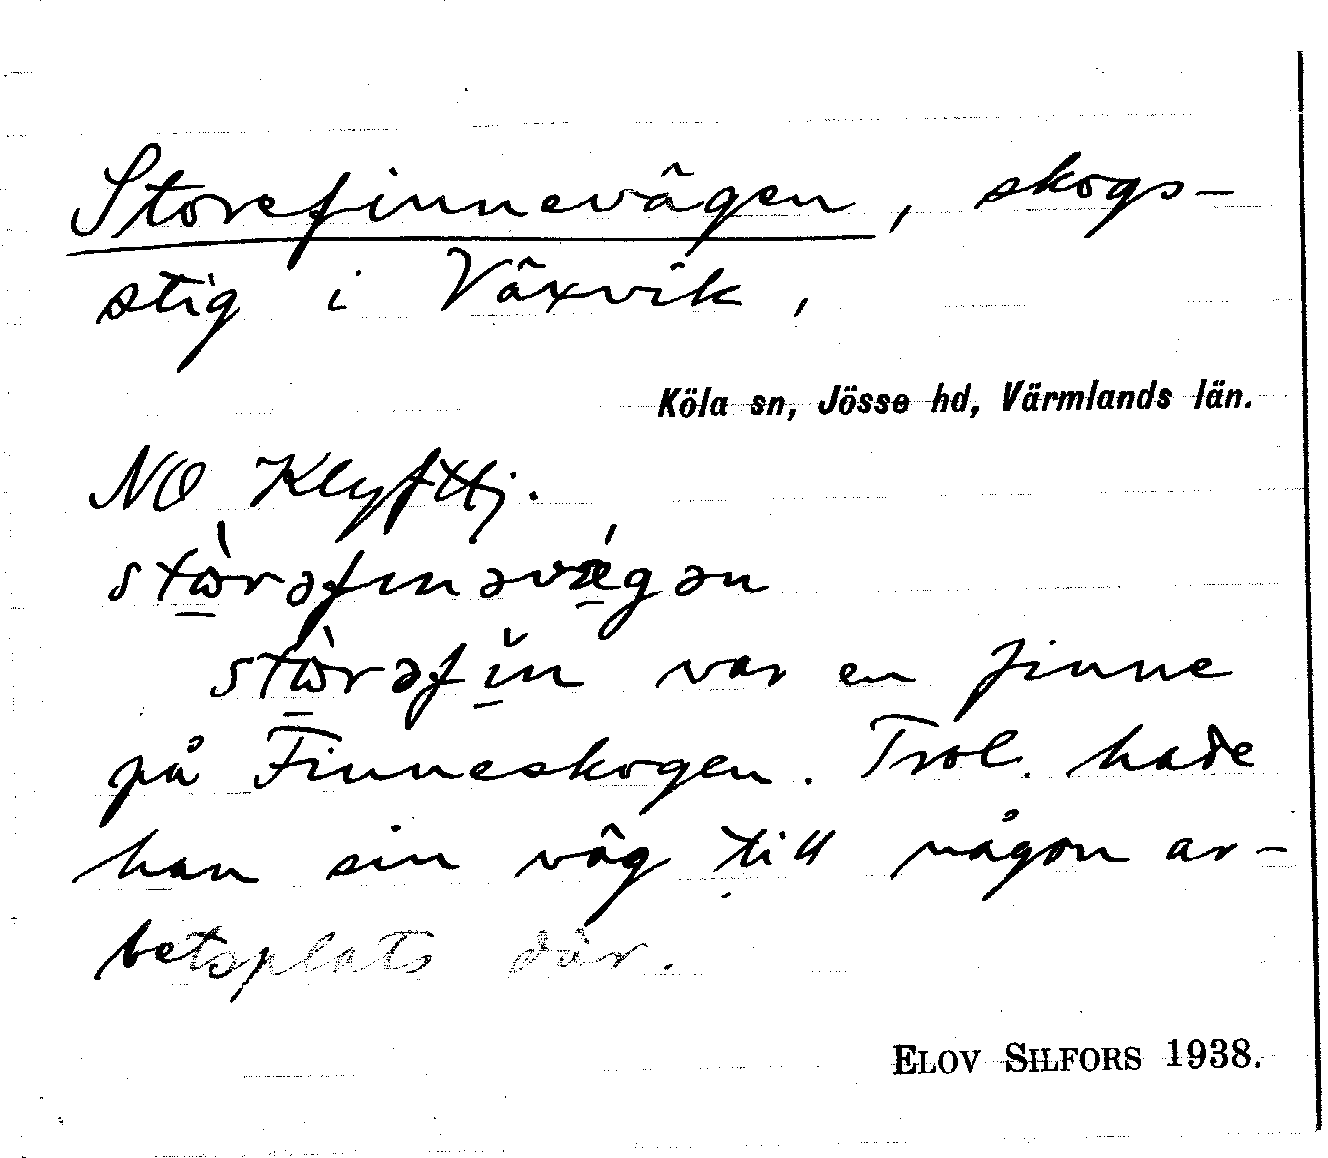 Storefinnevägen, skogs-
stig i Växvik,
Köla sn, Jösse hd, Värmlands län.
NO Klyfttj.
stὼrəfınəvǽgən
stὼrəfı̌n var en finne
på Finneskogen. Trol. hade
han sin väg till någon ar-
betsplats där.
ELOV SILFORS 1938.